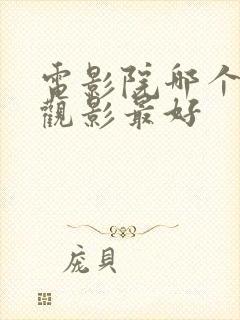 電影院哪个
觀影最好
庞貝